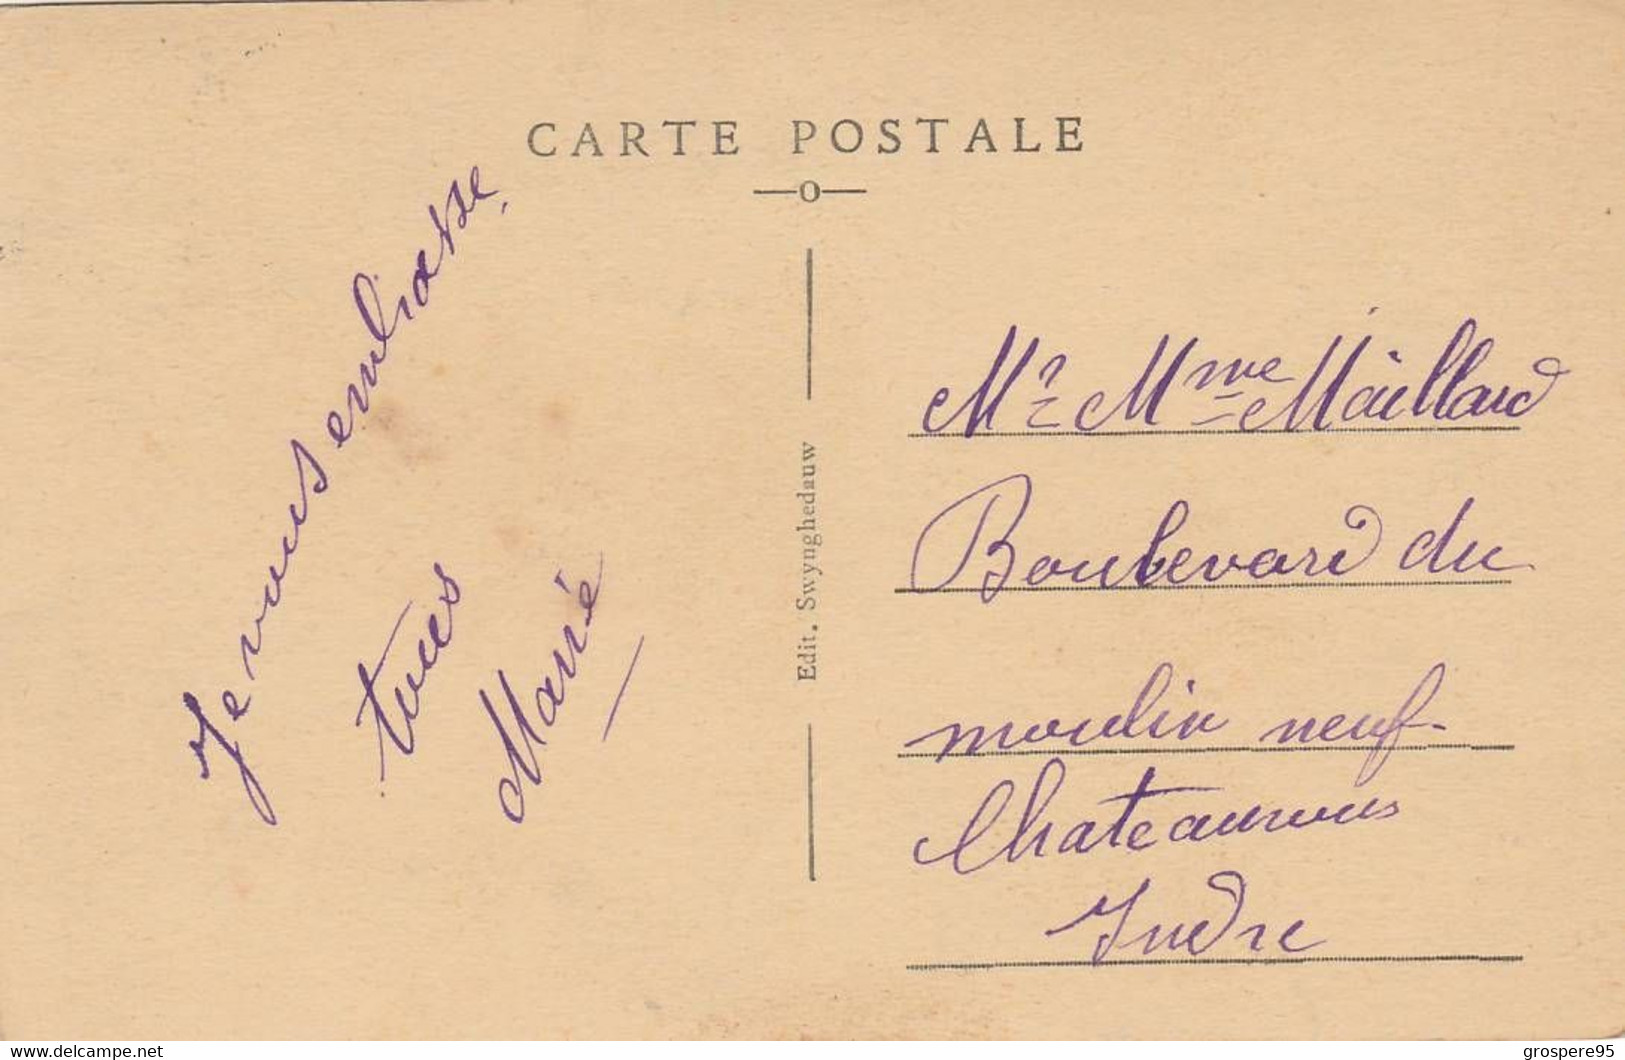 CARTE POSTALE
Je vous embrasse
tous
Marie
Edit. Swynghedauw
Mr Mme Maillard
Boulevard du
moulin neuf
Chateauroux
Indre
www.delcampe.net
grospere95